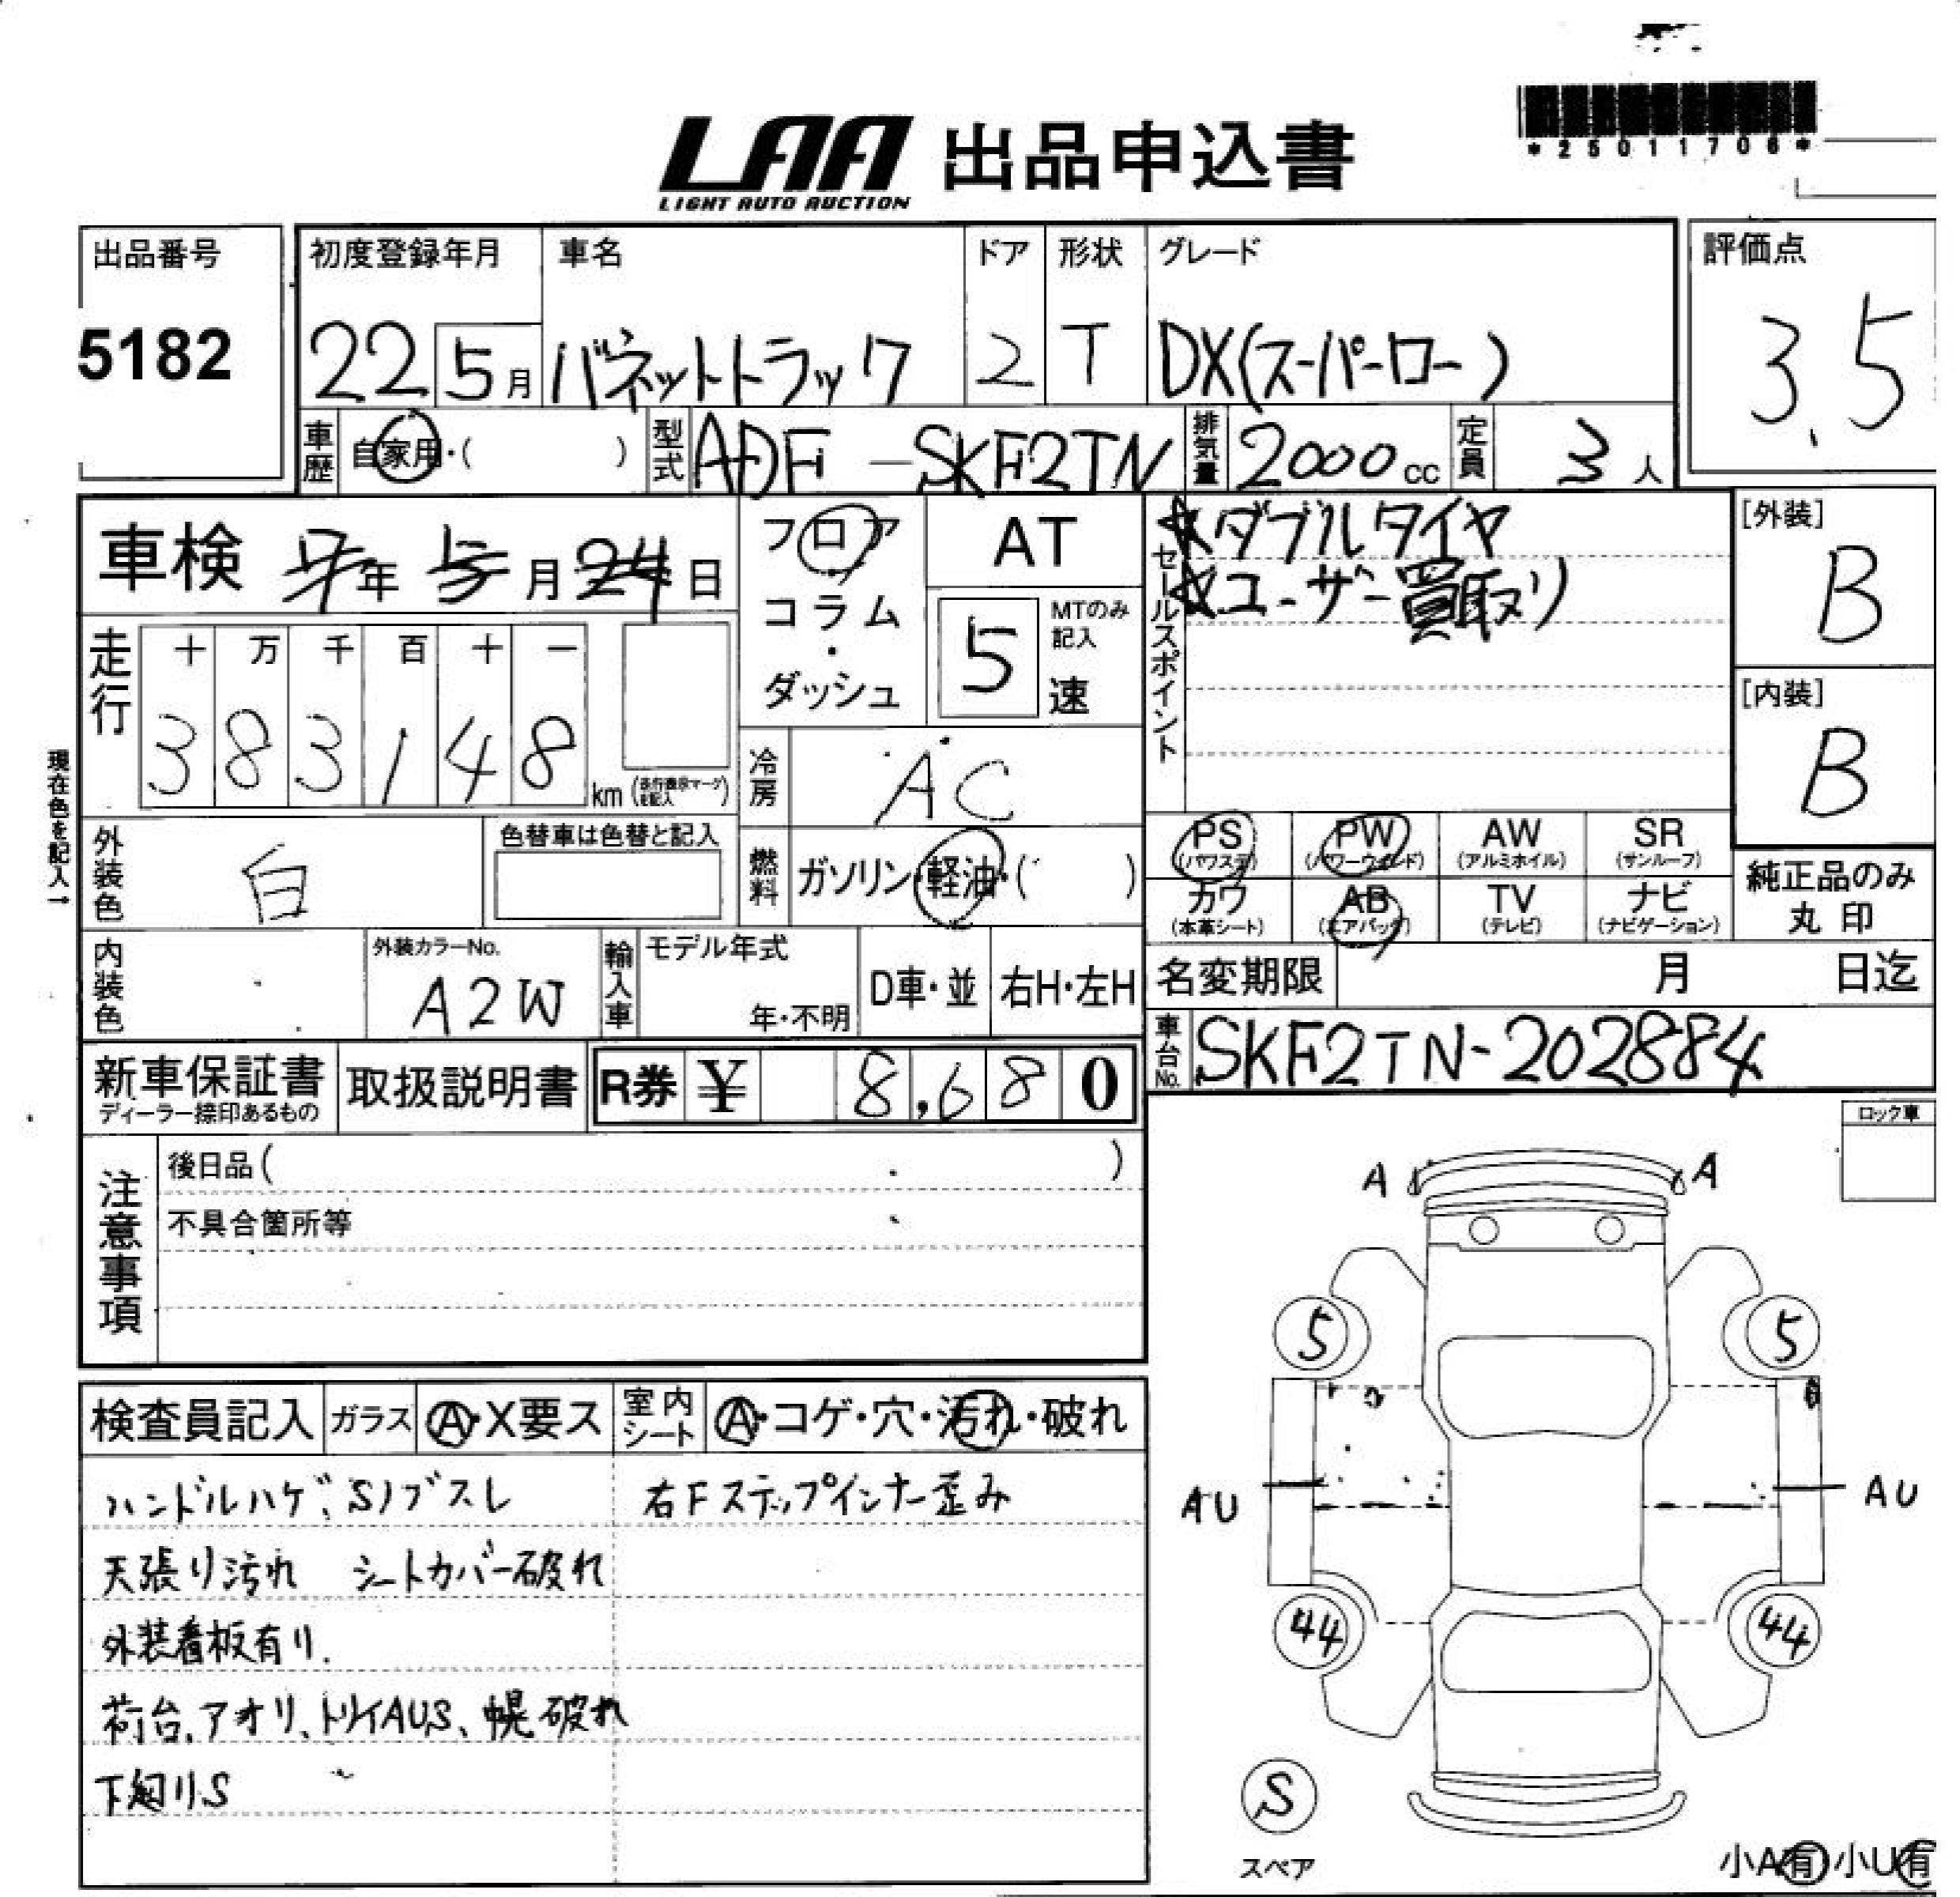 *25011706*
LAA 出品申込書
LIGHT AUTO AUCTION
出品番号
5182
初度登録年月
22 5月
車名
バネットトラック
ドア
2
形状
T
グレード
DX(スーパーロー)
評価点
3.5
車歴
自家用・( )
型式
ADF-SKF2TN
排気量
2000cc
定員
3人
車検 7年 5月 24日
フロア
・
コラム
・
ダッシュ
AT
5速
MTのみ
記入
セールスポイント
☆ダブルタイヤ
☆ユーザー買取り
[外装]
B
[内装]
B
走行
十 万 千 百 十 一
3 8 3 1 4 8
km(走行表示マークを記入)
冷房
AC
燃料
ガソリン・軽油・( )
PS
(パワステ)
PW
(パワーウインド)
AW
(アルミホイル)
SR
(サンルーフ)
カワ
(本革シート)
AB
(エアバッグ)
TV
(テレビ)
ナビ
(ナビゲーション)
純正品のみ
丸印
現在色を記入→
外装色
白
色替車は色替と記入
内装色
外装カラーNo.
A2W
輸入車
モデル年式
年・不明
D車・並
右H・左H
名変期限 月 日迄
車台No.
SKF2TN-202884
新車保証書
ディーラー捺印あるもの
取扱説明書
R券 ¥ 8,680
注意事項
後日品( )
不具合箇所等
ロック車
A A
5 5
AU AU
44 44
S
スペア
小A有 小U有
検査員記入 ガラス A・X要ス 室内シート A・コゲ・穴・汚れ・破れ
ハンドルハゲ、Sノブスレ
右Fステップインナー歪み
天張り汚れ シートカバー破れ
外装看板有り.
荷台、アオリ、トリイAUS、幌破れ
下廻りS